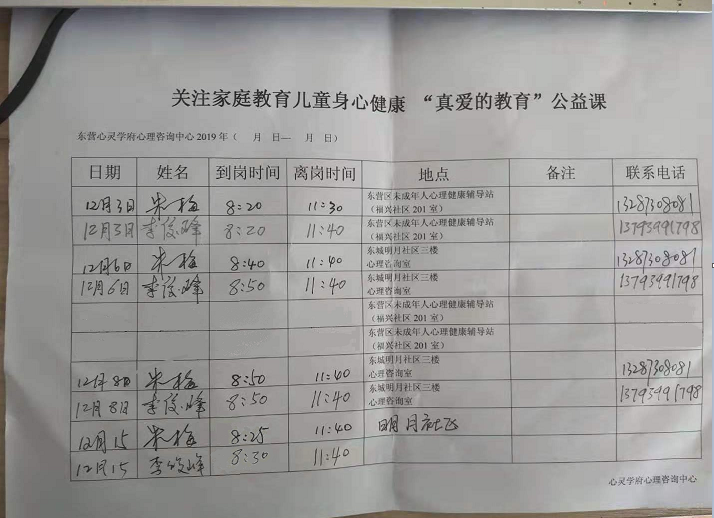 关注家庭教育儿童身心健康 “真爱的教育”公益课
东营心灵学府心理咨询中心 2019 年（ 月 日— 月 日）
日期 姓名 到岗时间 离岗时间 地点 备注 联系电话
12月3日 朱梅 8:20 11:30 东营区未成年人心理健康辅导站 13287308081
（福兴社区 201 室）
12月3日 李俊峰 8:20 11:40 东营区未成年人心理健康辅导站 13793991798
（福兴社区 201 室）
12月6日 朱梅 8:40 11:40 东城明月社区三楼 13287308081
心理咨询室
12月6日 李俊峰 8:50 11:40 东城明月社区三楼 13793991798
心理咨询室
东营区未成年人心理健康辅导站
（福兴社区 201 室）
东营区未成年人心理健康辅导站
（福兴社区 201 室）
12月8日 朱梅 8:50 11:40 东城明月社区三楼 13287308081
心理咨询室
12月8日 李俊峰 8:50 11:40 东城明月社区三楼 13793991798
心理咨询室
12月15 朱梅 8:25 11:40 明月社区
12月15 李俊峰 8:30 11:40
心灵学府心理咨询中心